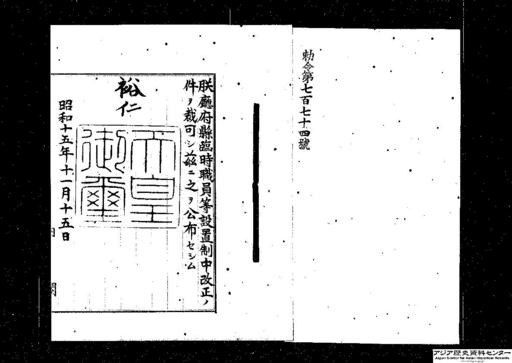 勅令第七百七十四號
朕廳府縣臨時職員等設置制中改正ノ
件ヲ裁可シ茲ニ之ヲ公布セシム
裕仁
天皇
御璽
昭和十五年十一月十五日
内閣
アジア歴史資料センター
Japan Center for Asian Historical Records